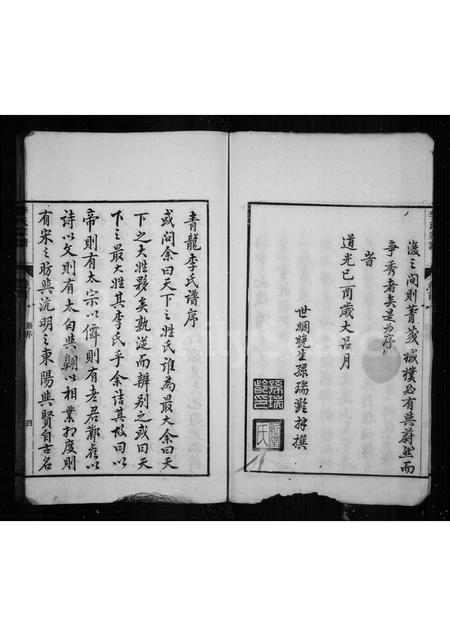 濩之間則菁莪棫樸必有與蔚然而
爭秀者矣是為序
旹
道光己酉歲大呂月
世姻晚生孫瑞齡拜撰
青龍李氏譜序
或問余曰天下之姓氏誰為最大余曰天
下之大姓夥矣孰從而辨別之或曰天
下之最大姓其李氏乎余詰其故曰以
帝則有太宗以儒則有老君鄴侯以
詩以文則有太白與翱以相業相度則
有宋之昉與沆明之東陽與賢自古名
四